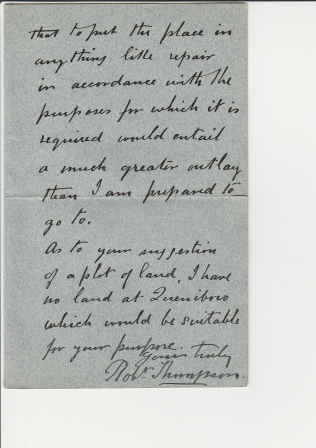 that to put the place in
anything like repair
in accordance with the
purposes for which it is
required would entail
a much greater outlay
than I am prepared to
go to.
As to your suggestion
of a plot of land, I have
no land at Queniboro
which would be suitable
for your purpose.
Yours truly
Robt. Thompson.